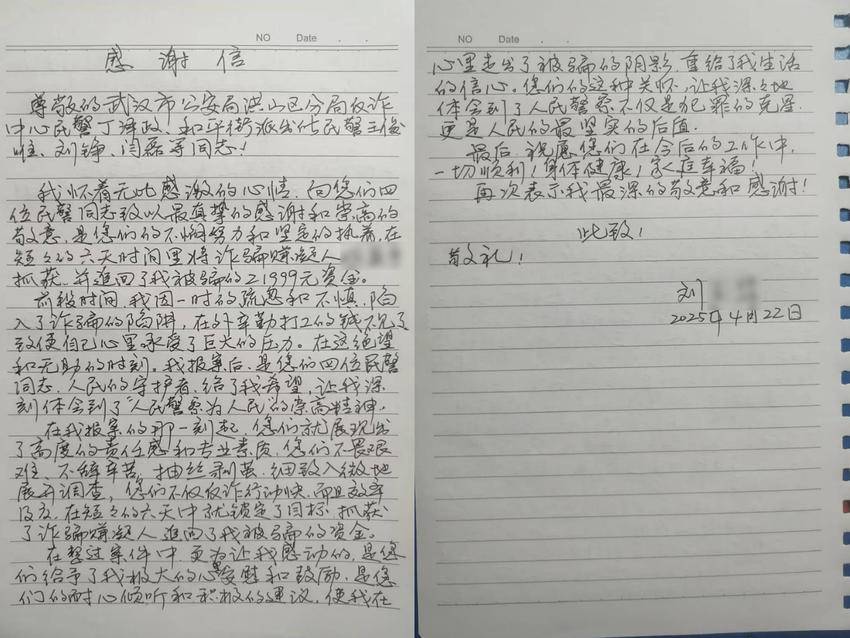 NO Date . .
感谢信
尊敬的武汉市公安局洪山区分局反诈
中心民警丁泽政、和平街派出所民警王俊
唯、刘铮、闫磊等同志！
我怀着无比感激的心情，向您们四
位民警同志致以最真挚的感谢和崇高的
敬意，是您们的不懈努力和坚定的执着，在
短短的六天时间里将诈骗嫌疑人
抓获，并追回了我被骗的21999元资金。
前段时间，我因一时的疏忽和不慎，陷
入了诈骗的陷阱，在外辛勤打工的钱不见了
致使自己心里承受了巨大的压力。在这绝望
和无助的时刻。我报案后，是您们四位民警
同志，人民的守护者，给了我希望，让我深
刻体会到了“人民警察为人民”的崇高精神。
在我报案的那一刻起，您们就展现出
了高度的责任感和专业素质，您们不畏艰
难、不辞辛苦，抽丝剥茧，细致入微地
展开调查，您们不仅反诈行动快，而且效率
及高，在短短的六天中就锁定了目标，抓获
了诈骗嫌疑人，追回了我被骗的资金。
在整过案件中，更为让我感动的，是您
们给予了我极大的心里安慰和鼓励，是您
们的耐心倾听和积极的建议，使我在
NO Date . .
心里走出了被骗的阴影，重给了我生活
的信心。您们的这种关怀，让我深深地
体会到了人民警察不仅是犯罪的克星，
更是人民的最坚实的后盾。
最后，祝愿您们在今后的工作中，
一切顺利！身体健康！家庭幸福！
再次表示我最深的敬意和感谢！
此致！
敬礼！
刘
2025年4月22日